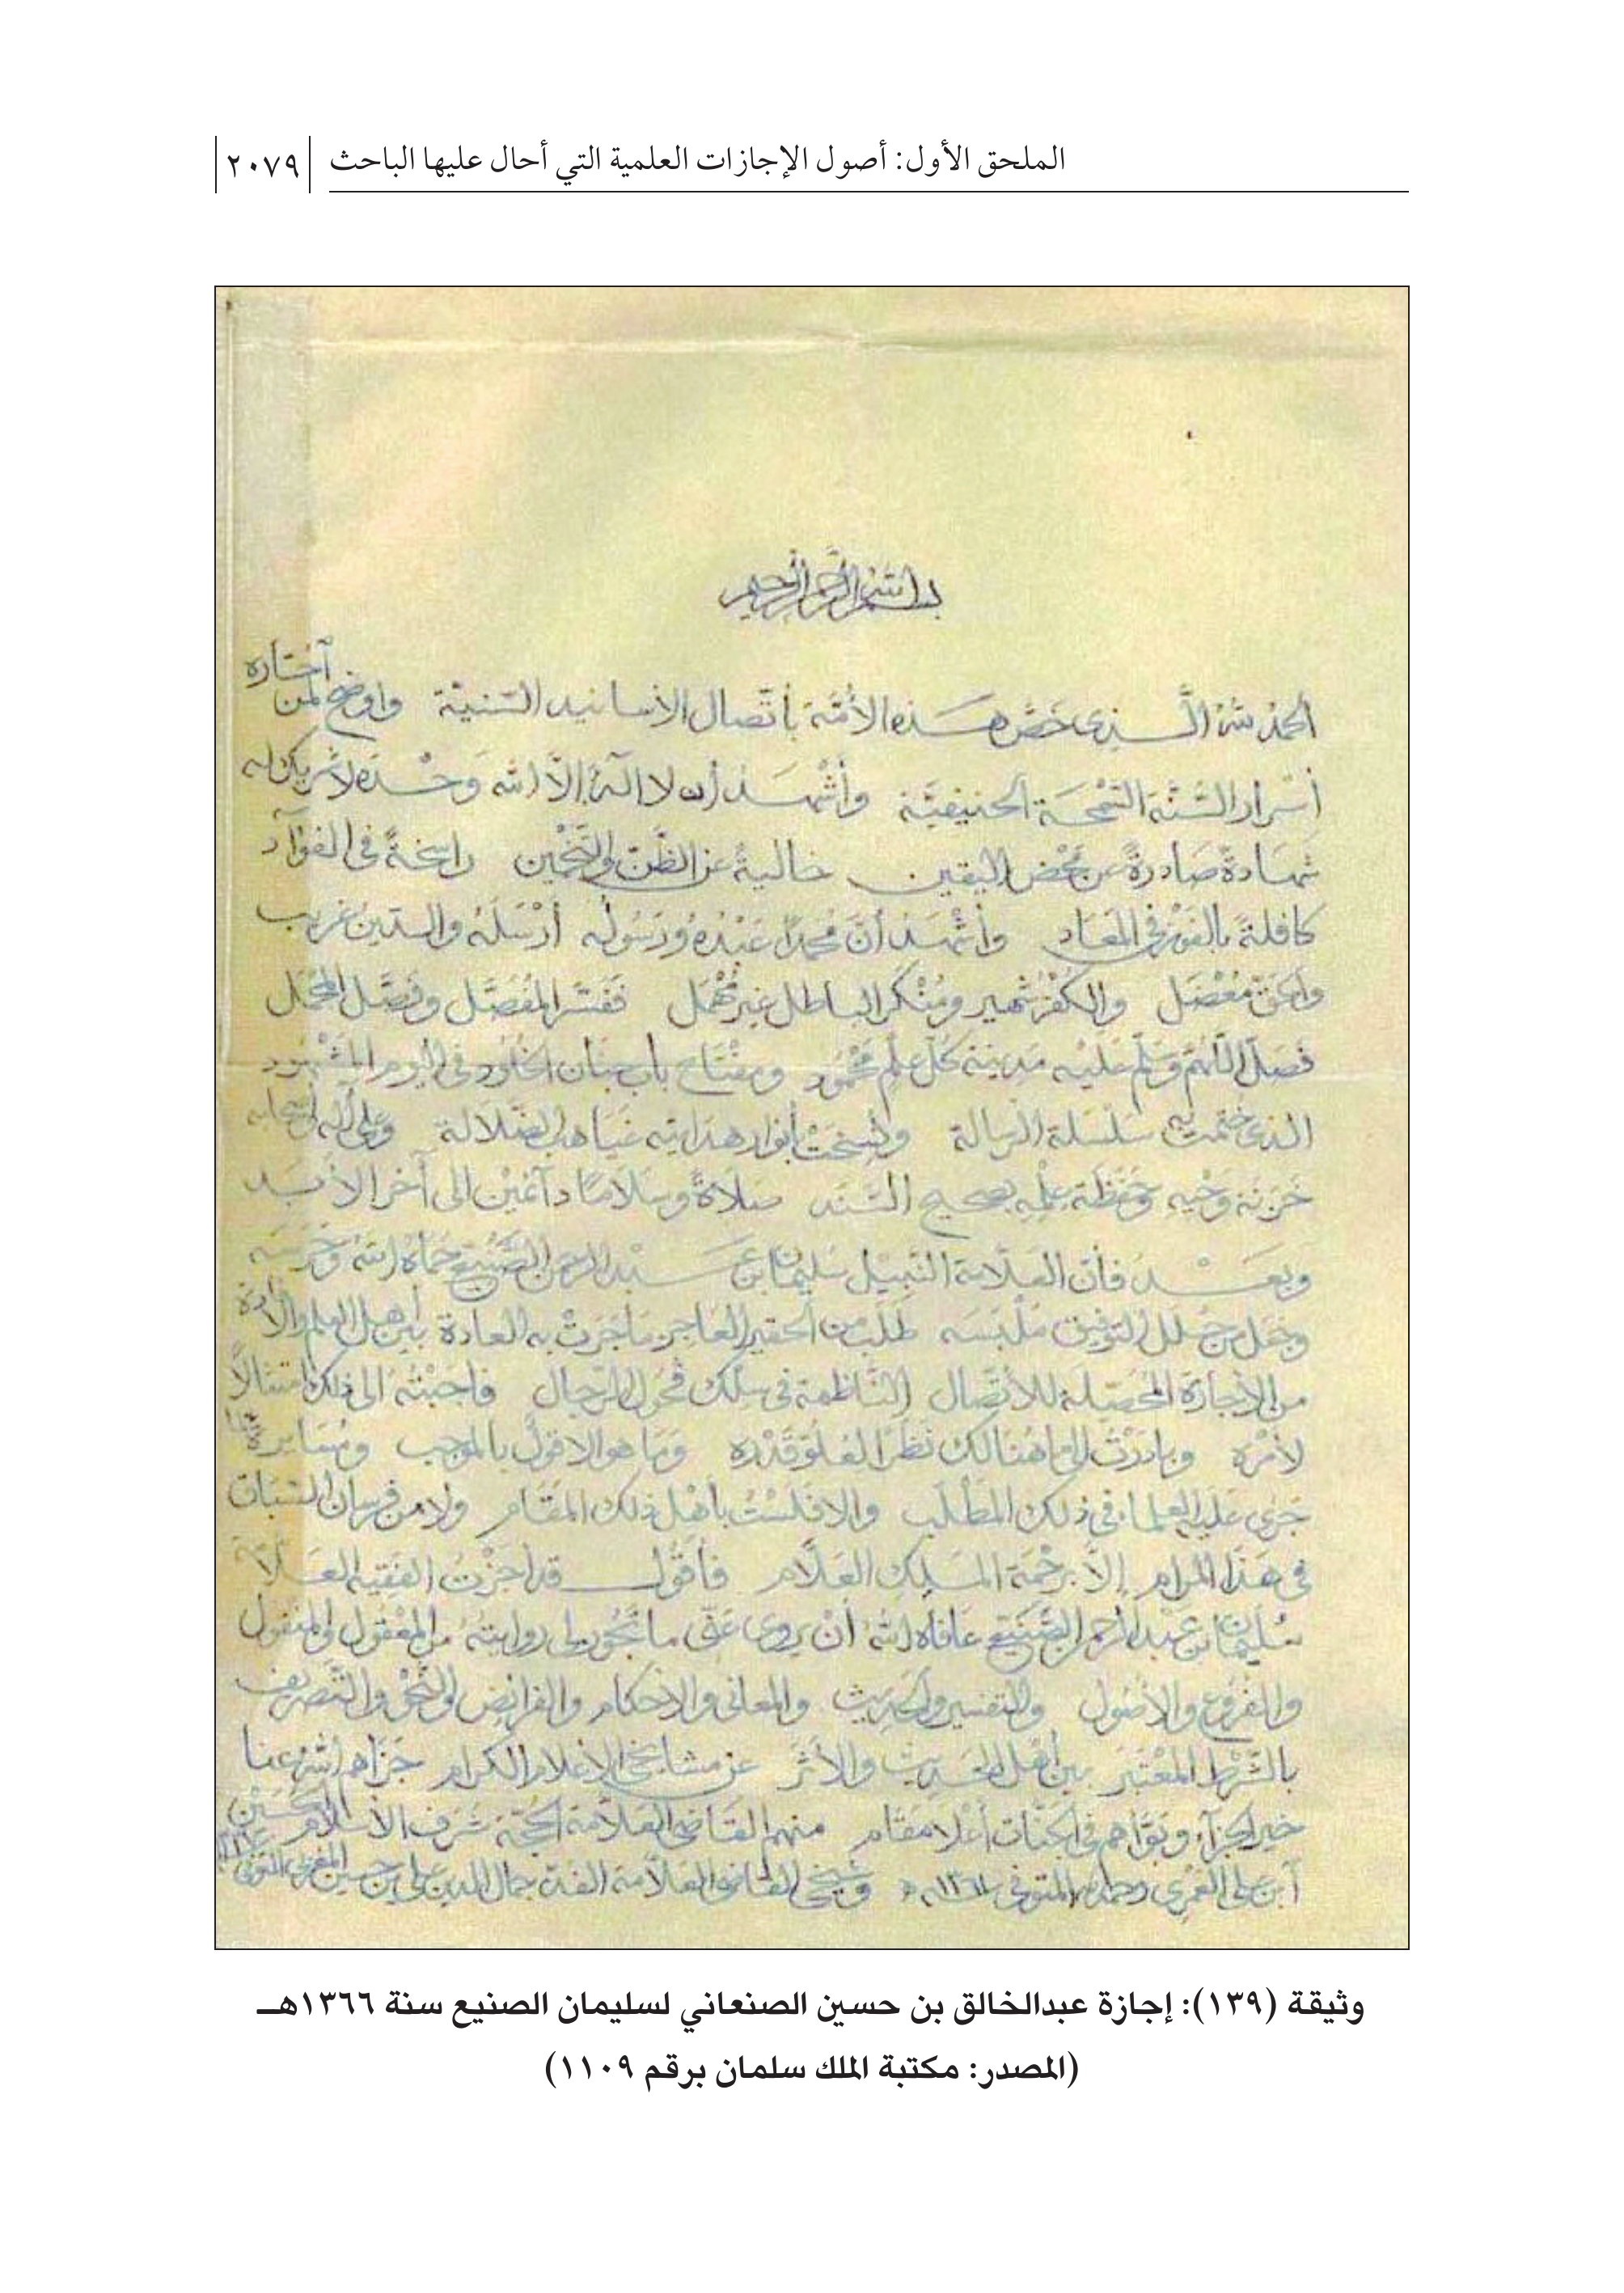 الملحق الأول: أصول الإجازات العلمية التي أحال عليها الباحث ٢٠٧٩
بسم الله الرحمن الرحيم
ألحمد لله الَّذي خصَّ هذه الأمّة بأتّصال الأسانيد السّنيّة واوضح لمن أختاره
أسْرار السّنّة السّمْحة الحنيفيّة وأشْهد أن لا اله إلاّ الله وحْده لا شريك له
شهادةً صادرةً عن محْض اليقين خاليةً عن الظّن والتّخمين راسخةً في الفؤآد
كافلةً بالفوْز في المعاد وأشْهد أنّ محمداً عبْدُه ورسُوله أرْسَلهُ والدّينُ غريب
والحقّ مُعْضَل والكفْر شهير ومُنْكر الباطل غير مُهْمَل ففسّر المُفصّل وفصّل المجْمَل
فصلّ اللّهمّ وسلّم عليه مدينة كلّ علمٍ محْمُود ومفْتاح باب جنان الخلود في اليوم المشْهود
الذي ختمت به سلسلة الرسالة ونُسِخَتْ بأنوار هدايته غياهب الضّلالة وعلى آله وأصحابه
خزنة وحْيه وحفظة علْمه بصحيح السّند صلاةً وسلاماً دآئمَيْن الى آخر الأبد
وبعد فأن العلاّمة النّبيل سليمان بن عبد الرحمن الصّنيع حماه الله وحرسه
وجعل من حُلل التوفيق ملْبسه طلب من الحقير العاجز ما جَرَتْ به العادة بين أهل العلم والأفادة
من الأجازة المُحَصّلة للأتّصال النّاظمة في سلْك فحُول الرّجال فاجبْتُهُ الى ذلك امتثالاً
لأمْره وبادرْتُ الى ما هُنالك نظراً لعُلوّ قدْره وما هو إلا قولٌ بالموجب ومُسايرةٌ لما
جرى عليه العلما في ذلك المطْلب والا فلسْتُ بأهْل ذلك المقام ولا من فرسان السّباق
في هذا المرام إلاّ برحْمة الملك العلاّم فأقُول قد أجزْتُ الفقيه العلاّمة
سُليمان بن عبد الرحمن الصّنيع عافاه الله أنْ يروى عنّى ما تجُوز لي روايتُهُ من المعْقول والمنقول
والفروع والأصُول والتفسير والحديث والمعانى والأحكام والفرائض والنّحْو والتّصريف
بالشّرْط المُعْتبَر بين أهل الحديث والأثَر عن مشايخي الأعلام الكرام جزاهم الله عنا
خير الجزآء وبوّأهم في الجنّات أعْلا مقام منهم القاضي العلاّمة الحجّة شرف الأسلام الحُسَيْن
أبن علي العمْرى رحمه الله المتوفى سنة ١٣٦١ه وشيخي القاضي العلاّمة جمال الدين علي بن حسين المغربي المتوفى
وثيقة (١٣٩): إجازة عبدالخالق بن حسين الصنعاني لسليمان الصنيع سنة ١٣٦٦هـ
(المصدر: مكتبة الملك سلمان برقم ١١٠٩)